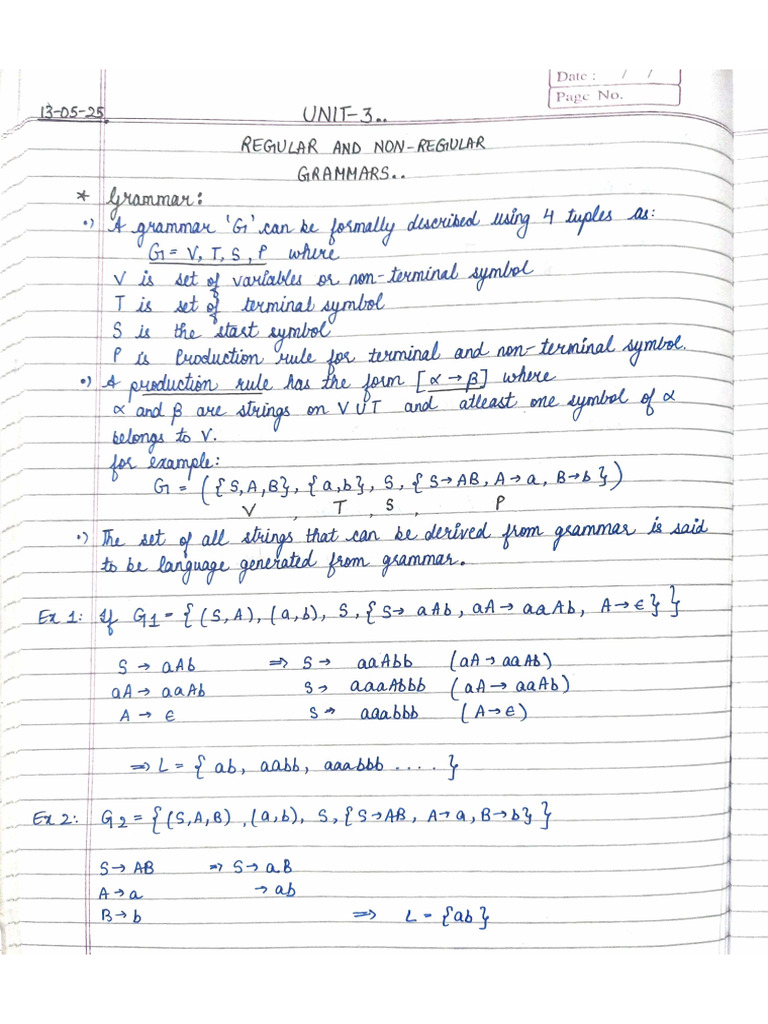 Date : / /
Page No.
13-05-25.
UNIT-3..
REGULAR AND NON-REGULAR
GRAMMARS..
* Grammar:
•) A grammar 'G' can be formally described using 4 tuples as:
G = V, T, S, P where
V is set of variables or non-terminal symbol
T is set of terminal symbol
S is the start symbol
P is Production rule for terminal and non-terminal symbol.
•) A production rule has the form [α → β] where
α and β are strings on V U T and atleast one symbol of α
belongs to V.
for example:
G = ({S,A,B}, {a,b}, S, {S→AB, A→a, B→b})
V , T , S , P
•) The set of all strings that can be derived from grammar is said
to be language generated from grammar.
Ex 1: If G1 = {(S,A), (a,b), S, {S→ aAb, aA→ aaAb, A→ϵ}}
S → aAb ⇒ S → aaAbb (aA→ aaAb)
aA→ aaAb S→ aaaAbbb (aA→ aaAb)
A → ϵ S→ aaabbb (A→ϵ)
⇒ L = {ab, aabb, aaabbb ....}
Ex 2: G2 = {(S,A,B), (a,b), S, {S→AB, A→a, B→b}}
S→ AB ⇒ S→ aB
A→a → ab
B→ b ⇒ L = {ab}